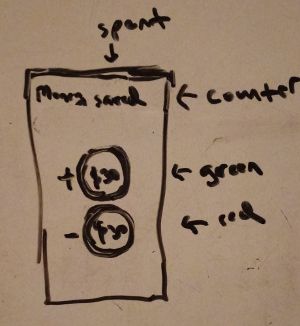 spent
Money saved ← counter
+ $30 ← green
- $30 ← red